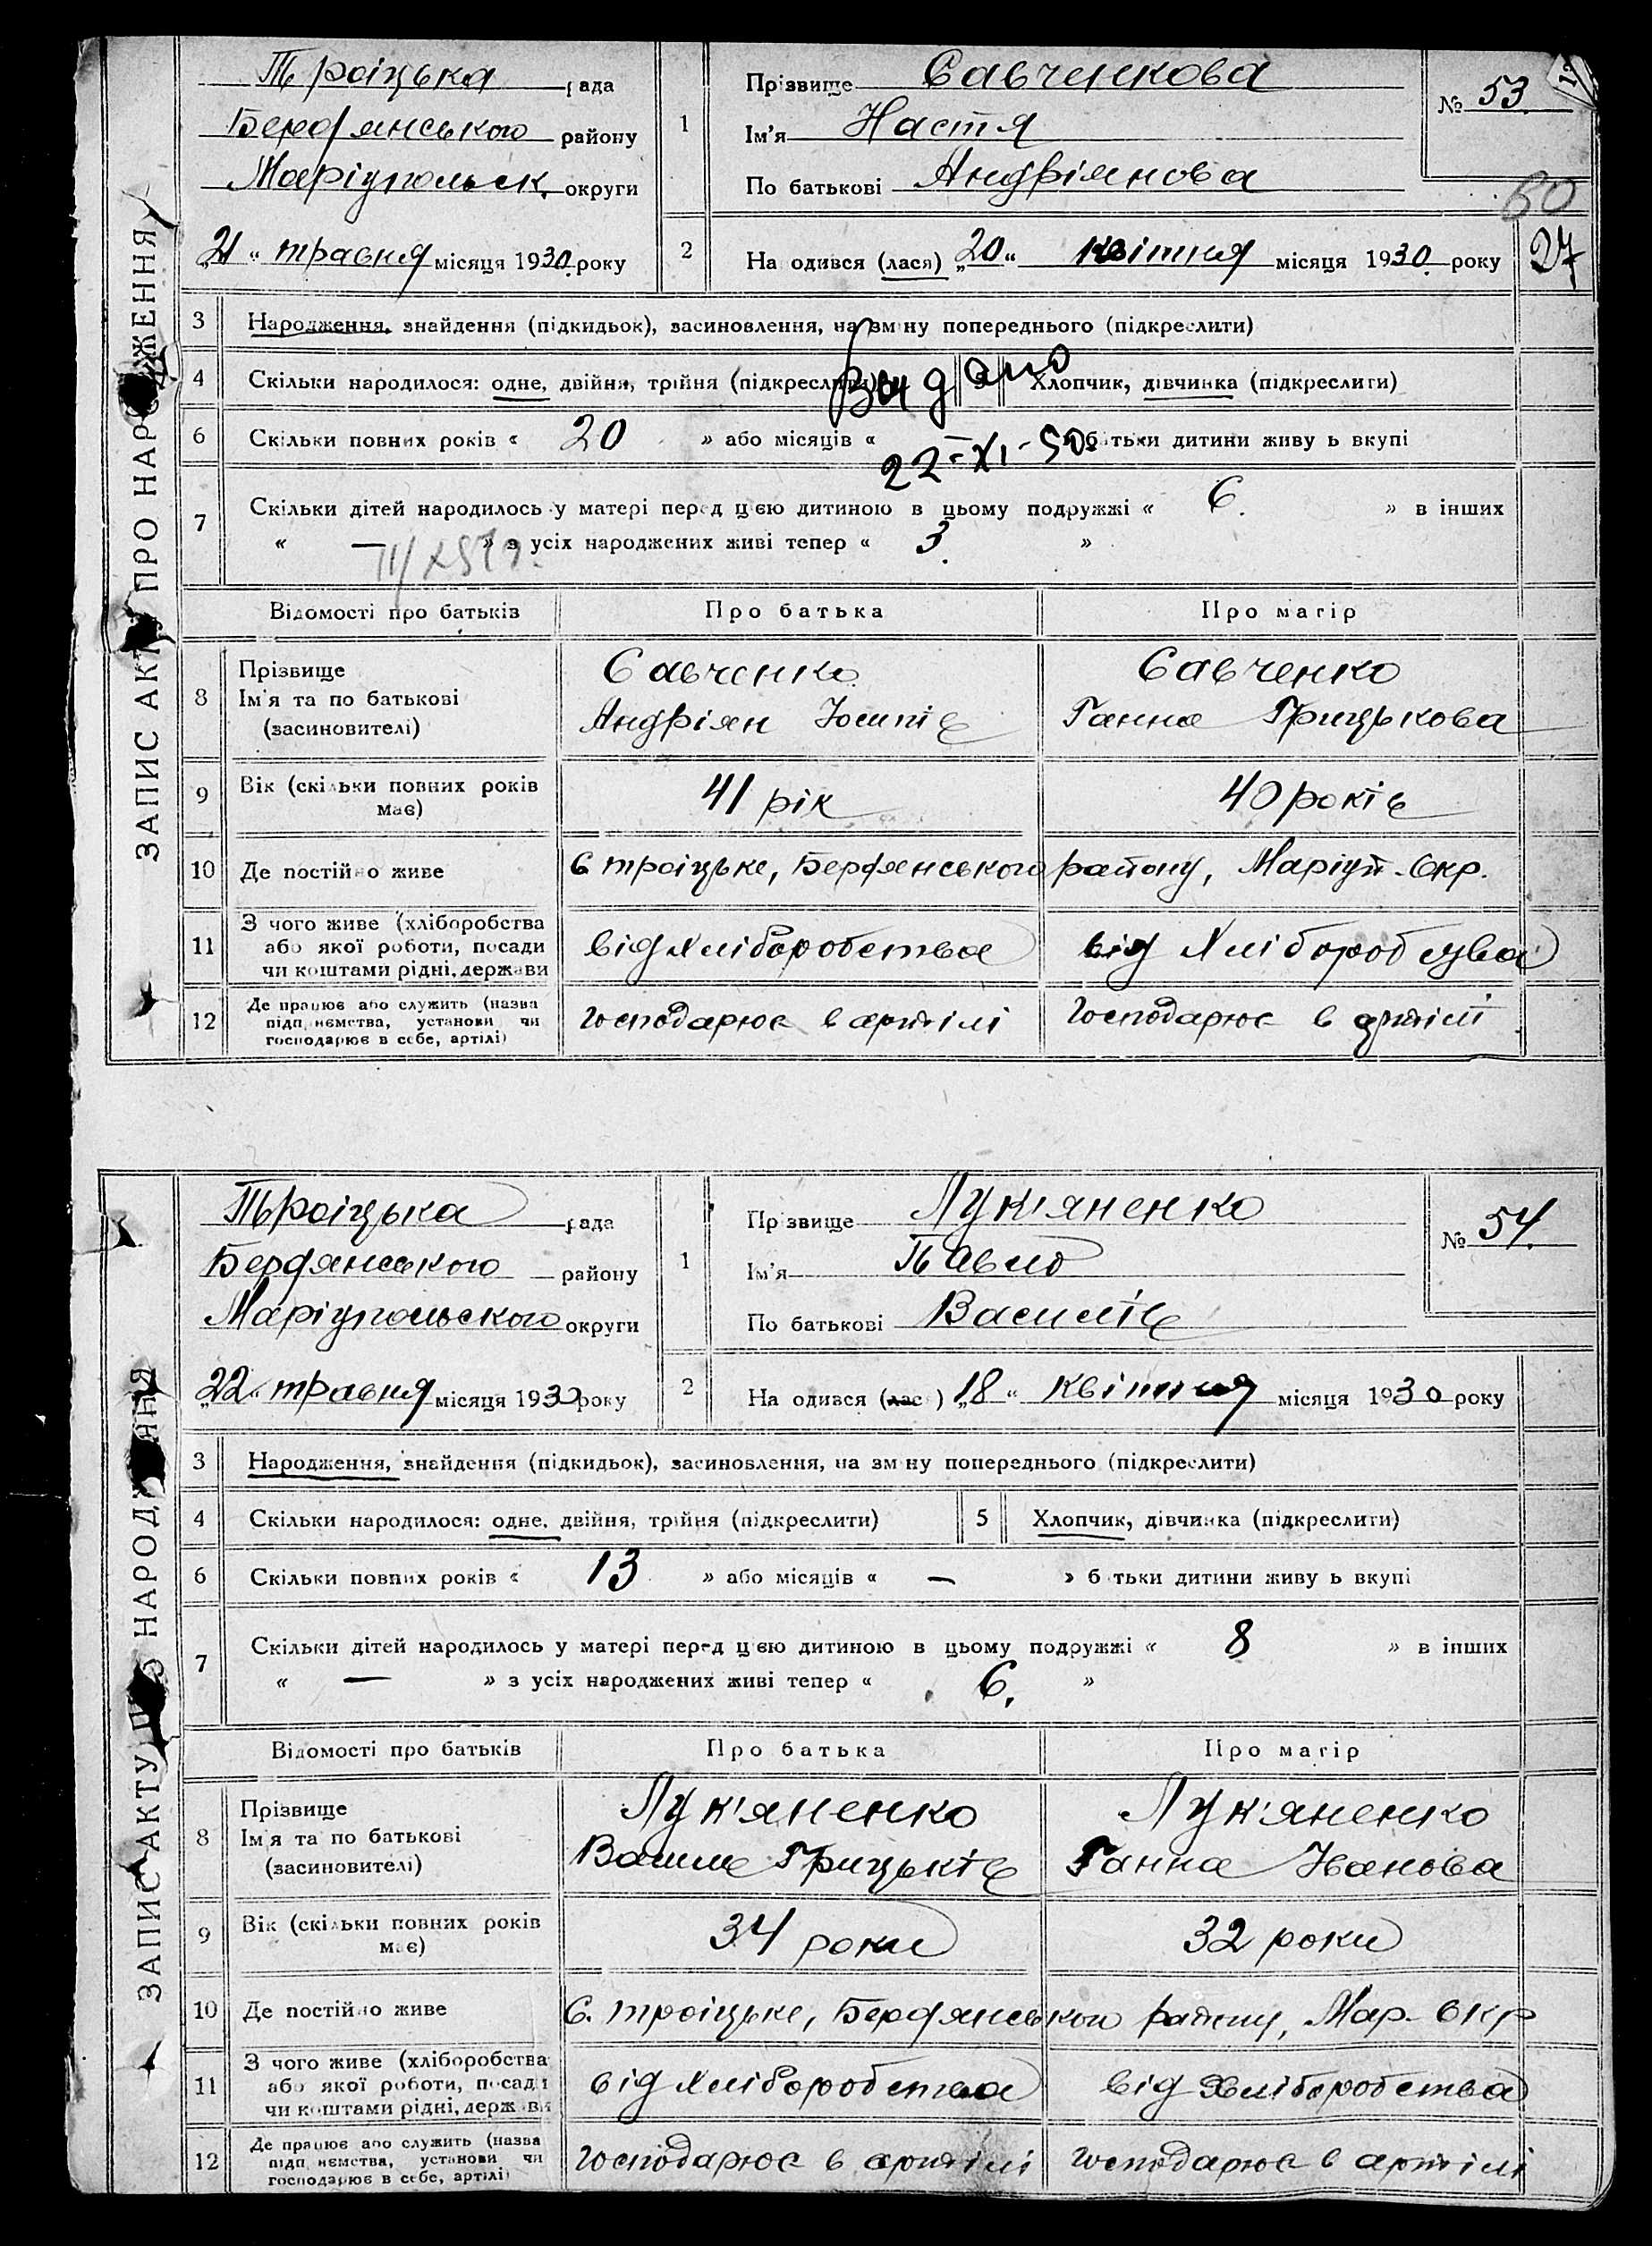 ЗАПИС АКТУ ПРО НАРОДЖЕННЯ
Троіцька рада
Бердянського району
Маріупольск. округи
„21“ травня місяця 1930. року
1
Прізвище Савченкова
Ім'я Настя
По батькові Андріянова
№ 53.
60
27
2
Народився (лася) „20“ квітня місяця 1930. року
3 Народження, знайдення (підкидьок), засиновлення, на зміну попереднього (підкреслити)
4 Скільки народилося: одне, двійня, трійня (підкреслити) Хлопчик, дівчинка (підкреслити)
Видано
22-XI-50.
6 Скільки повних років « 20 » або місяців « батьки дитини живуть вкупі
7 Скільки дітей народилось у матері перед цією дитиною в цьому подружжі « 6. » в інших
« — » з усіх народжених живі тепер « 3. »
Відомості про батьків Про батька Про матір
8 Прізвище Савченко Савченко
Ім'я та по батькові Андріян Юсипів Ганна Грицькова
(засиновителі)
9 Вік (скільки повних років має) 41 рік 40 років
10 Де постійно живе С троіцьке, Бердянського району, Маріуп. Окр.
11 З чого живе (хліборобства або якої роботи, посади чи коштами рідні, держави від хліборобства від хліборобства
12 Де працює або служить (назва підприємства, установи чи господарює в себе, артілі) господарює в артілі господарює в артілі
ЗАПИС АКТУ ПРО НАРОДЖЕННЯ
Троіцька рада
Бердянського району
Маріупольського округи
„22“ травня місяця 1930 року
1
Прізвище Лук'яненко
Ім'я Павло
По батькові Василів
№ 54.
2
Народився (лася) „18“ квітня місяця 1930 року
3 Народження, знайдення (підкидьок), засиновлення, на зміну попереднього (підкреслити)
4 Скільки народилося: одне, двійня, трійня (підкреслити) 5 Хлопчик, дівчинка (підкреслити)
6 Скільки повних років « 13 » або місяців « — » батьки дитини живуть вкупі
7 Скільки дітей народилось у матері перед цією дитиною в цьому подружжі « 8 » в інших
« — » з усіх народжених живі тепер « 6. »
Відомості про батьків Про батька Про матір
8 Прізвище Лук'яненко Лук'яненко
Ім'я та по батькові Василь Грицьків Ганна Іванова
(засиновителі)
9 Вік (скільки повних років має) 34 роки 32 роки
10 Де постійно живе С. троіцьке, Бердянського району, Мар. Окр
11 З чого живе (хліборобства або якої роботи, посади чи коштами рідні, держави від хліборобства від хліборобства
12 Де працює або служить (назва підприємства, установи чи господарює в себе, артілі) господарює в артілі господарює в артілі